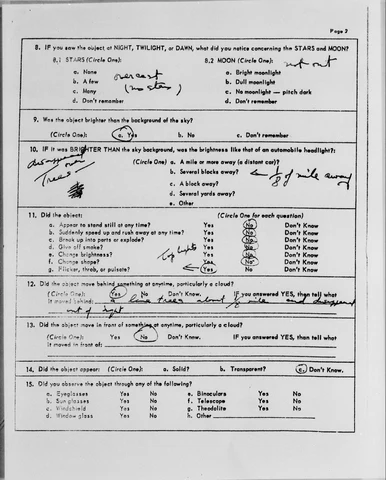 Page 2
8. IF you saw the object at NIGHT, TWILIGHT, or DAWN, what did you notice concerning the STARS and MOON?
8.1 STARS (Circle One): 8.2 MOON (Circle One): not out
a. None overcast a. Bright moonlight
b. A few (no stars) b. Dull moonlight
c. Many c. No moonlight – pitch dark
d. Don't remember d. Don't remember
9. Was the object brighter than the background of the sky?
(Circle One): a. Yes b. No c. Don't remember
10. IF it was BRIGHTER THAN the sky background, was the brightness like that of an automobile headlight?:
(Circle One) a. A mile or more away (a distant car)?
disappeared over trees b. Several blocks away? 1/8 of mile away
c. A block away?
d. Several yards away?
e. Other
11. Did the object: (Circle One for each question)
a. Appear to stand still at any time? Yes No Don't Know
b. Suddenly speed up and rush away at any time? Yes No Don't Know
c. Break up into parts or explode? Yes No Don't Know
d. Give off smoke? Yes No Don't Know
e. Change brightness? Yes No Don't Know
f. Change shape? Yes No Don't Know
g. Flicker, throb, or pulsate? Yes No Don't Know
12. Did the object move behind something at anytime, particularly a cloud?
(Circle One): Yes No Don't Know. IF you answered YES, then tell what
it moved behind: trees about 1/8 mile and disappeared
out of sight
13. Did the object move in front of something at anytime, particularly a cloud?
(Circle One): Yes No Don't Know. IF you answered YES, then tell what
it moved in front of:
14. Did the object appear: (Circle One): a. Solid? b. Transparent? c. Don't Know.
15. Did you observe the object through any of the following?
a. Eyeglasses Yes No e. Binoculars Yes No
b. Sun glasses Yes No f. Telescope Yes No
c. Windshield Yes No g. Theodolite Yes No
d. Window glass Yes No h. Other